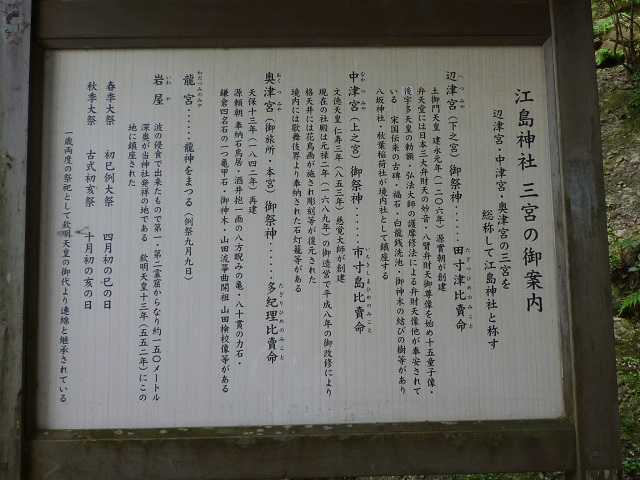 江島神社 三宮の御案内
辺津宮・中津宮・奥津宮の三宮を
総称して江島神社と称す
辺津宮（下之宮）御祭神・・・・・田寸津比賣命
へつみや
たぎつひめのみこと
土御門天皇 建永元年（一二〇六年）源實朝が創建
弁天堂には日本三大弁財天の妙音・八臂弁財天御尊像を始め十五童子像・
後宇多天皇の勅額・弘法大師の護摩修法による弁財天像他が奉安されて
いる 宋国伝来の古碑・福石・白龍銭洗池・御神木の結びの樹等があり
八坂神社・秋葉稲荷社が境内社として鎮座する
中津宮（上之宮）御祭神・・・・・市寸島比賣命
なかつみや
いちきしまひめのみこと
文徳天皇 仁寿三年（八五三年）慈覚大師が創建
現在の社殿は元禄二年（一六八九年）の御造営で平成八年の御改修により
格天井には花鳥画が施され彫刻等が復元された
境内には歌舞伎界より奉納された石灯籠等がある
奥津宮（御旅所・本宮）御祭神・・・・・多紀理比賣命
おくつみや
たぎりひめのみこと
天保十三年（一八四二年）再建
源頼朝 奉納石鳥居・酒井抱一画の八方睨みの亀・八十貫の力石・
鎌倉四名石の一つ亀甲石・御神木・山田流箏曲開祖 山田検校像等がある
龍宮・・・・・龍神をまつる（例祭九月九日）
わだつみのみや
岩屋 波の侵食で出来たもので第一・第二霊窟からなり約一五〇メートル
いわや
深奥が当神社発祥の地である 欽明天皇十三年（五五二年）にこの
地に鎮座された
春季大祭 初巳例大祭 四月初の巳の日
秋季大祭 古式初亥祭 十月初の亥の日
一歳両度の祭祀として欽明天皇の御代より連綿と継承されている